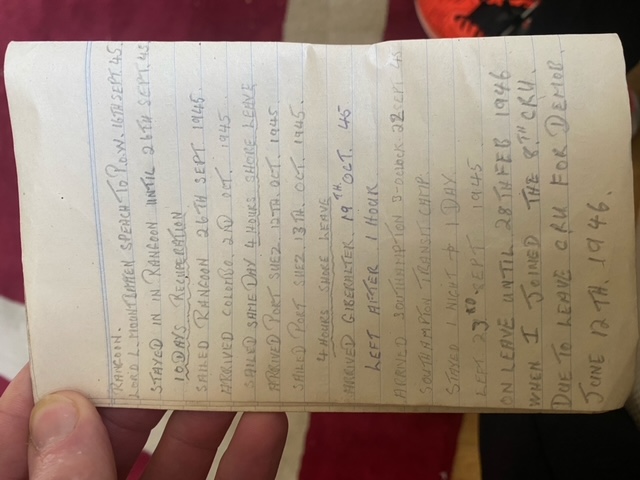 RANGOON.
LORD L. MOONTBATTEN SPEACH TO P.O.W. 16TH SEPT. 45.
STAYED IN IN RANGOON UNTIL 26TH SEPT. 45.
10 DAYS RECUPERATION
SAILED RANGOON 26TH SEPT 1945.
ARRIVED COLOMBO 2ND OCT. 1945.
SAILED SAME DAY 4 HOURS SHORE LEAVE
ARRIVED PORT SUEZ 12TH. OCT. 1945
SAILED PORT SUEZ 13TH. OCT. 1945.
4 HOURS SHORE LEAVE
ARRIVED GIBERALTER 19TH. OCT. 45
LEFT AFTER 1 HOUR
ARRIVED SOUTHAMPTON 3-OCLOCK 22 SEPT 45
SOUTHAMPTON TRANSIT CAMP
STAYED 1 NIGHT + 1 DAY.
LEFT 23RD. SEPT 1945
ON LEAVE UNTIL 28TH FEB 1946
WHEN I JOINED THE 8TH CRU.
DUE TO LEAVE CRU FOR DEMOB.
JUNE 12TH. 1946.